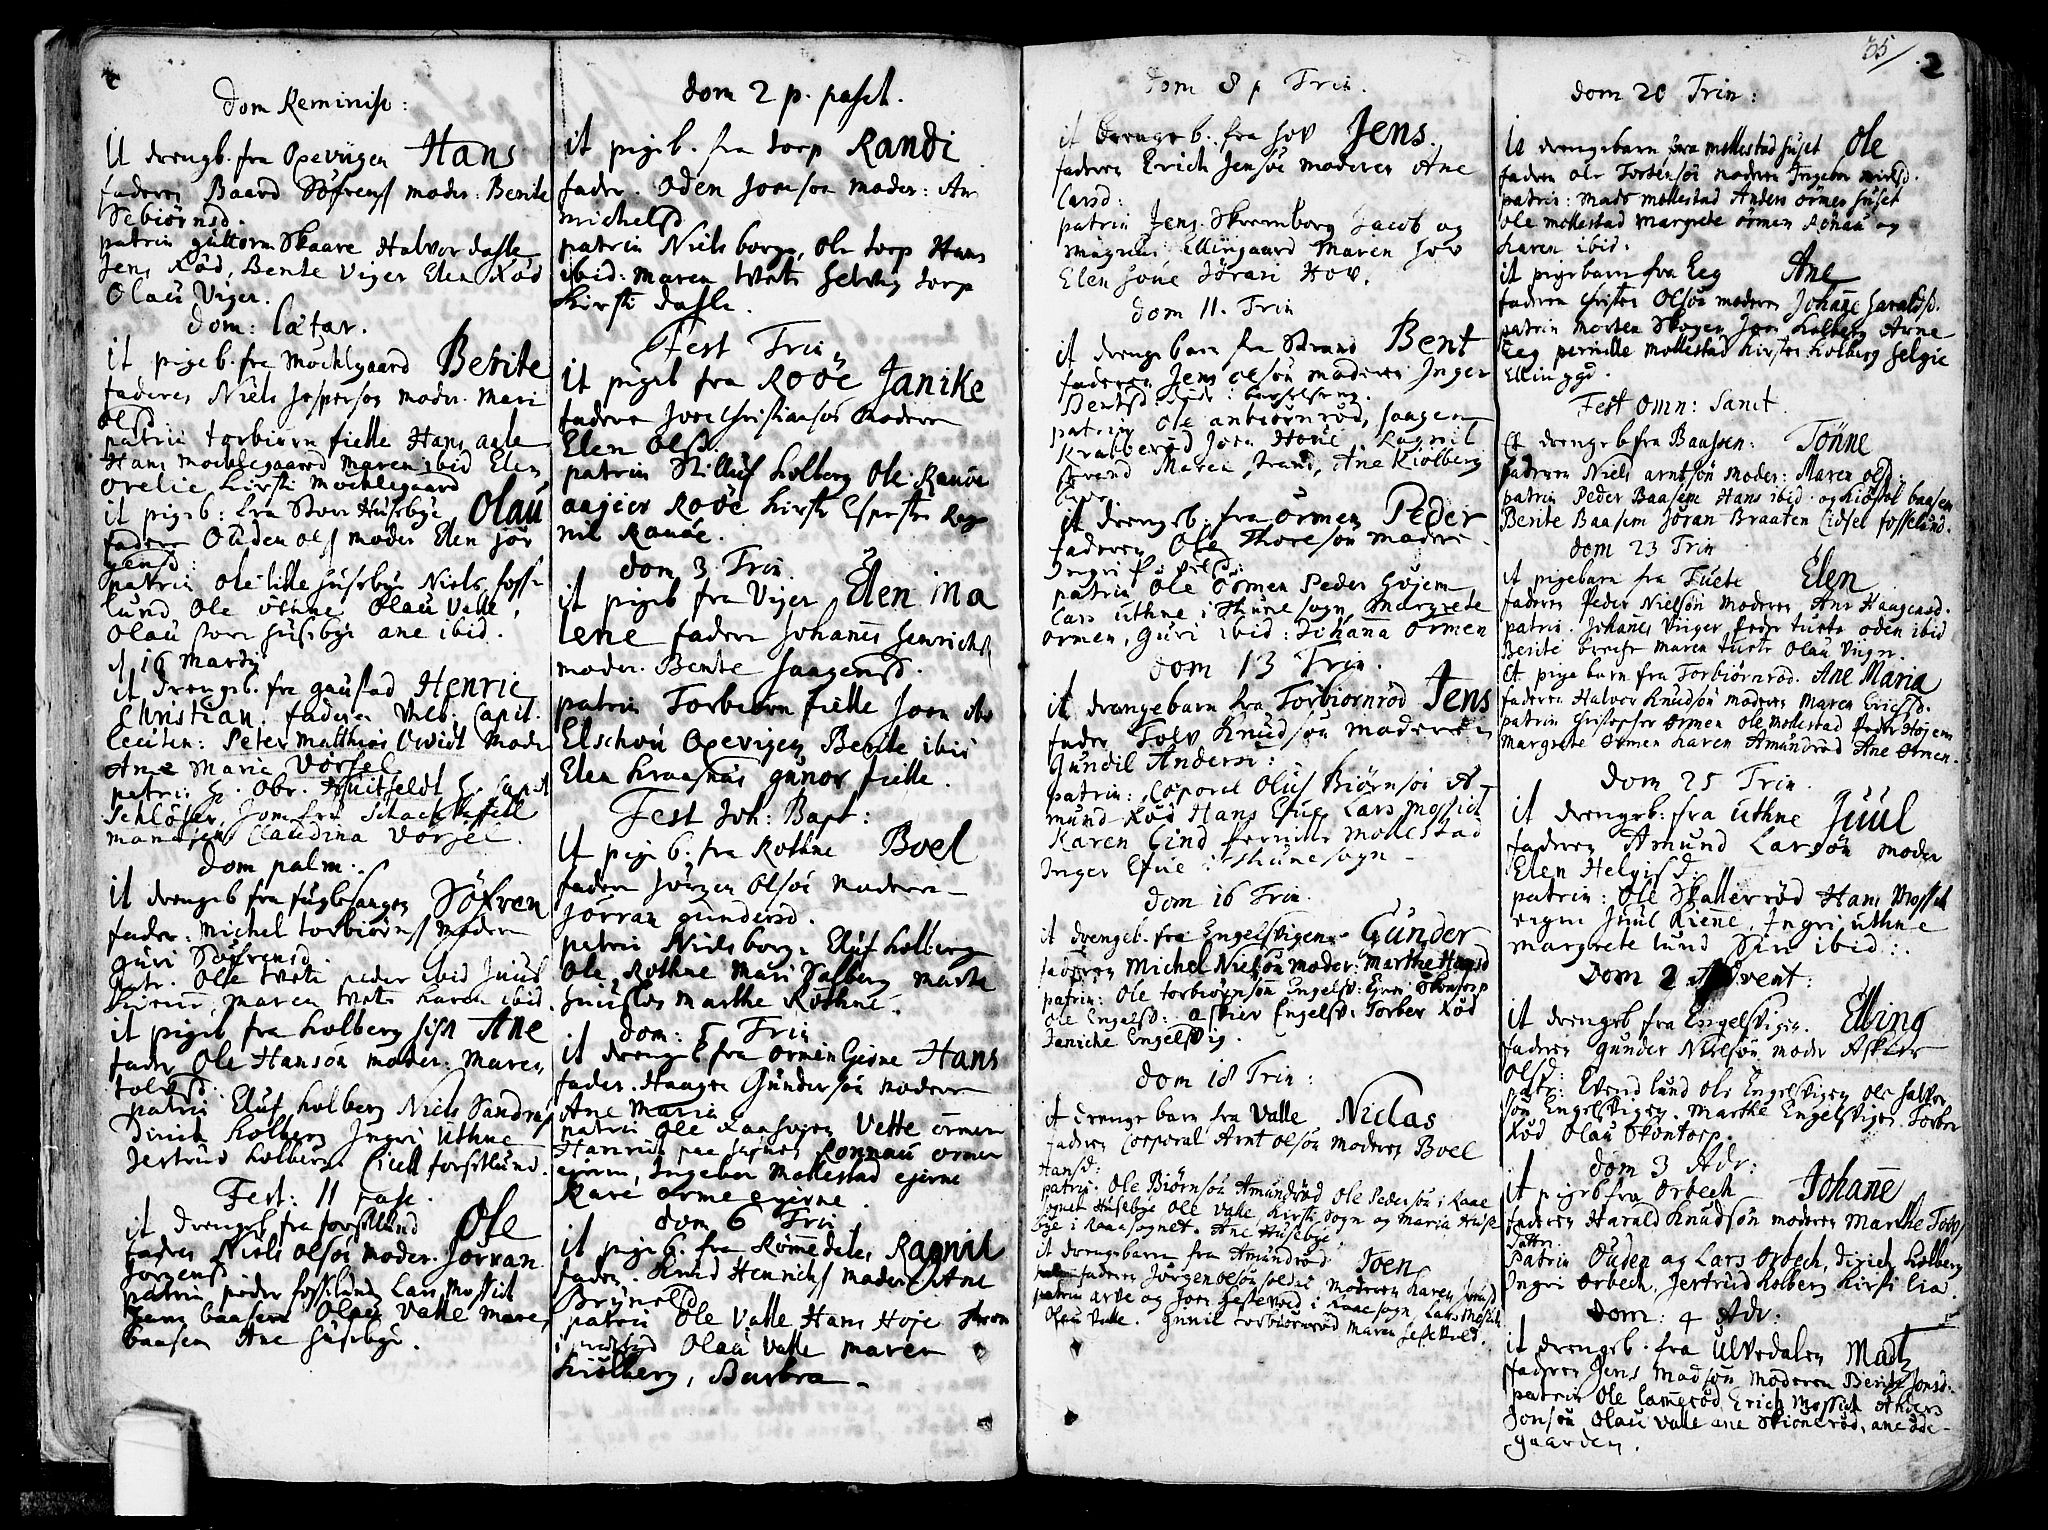 Dom Reminisc:
it drengb. fra Opevigen Hans
faderen Baard Söfrens moder: Benite
Sebiörnsd.
patrin guttorm Skaare Halvor dahle
Jens Röd, Bente Viger Elen Röd
Olau Viger.
Dom: lætar.
it pigeb. fra Mochlegaard Benite
faderen Niels Jespersön moder. Mari
Olsd
patrin torbiörn fielle Hans aale
Hans Mochlegaard Maren ibid Elen
orelie Kirsti Mochlegaard
it pigeb: fra Store Huusebye Olau
fader Ouden ols moder Elen Jör
gensd:
patrin Ole lille husebye Niels foss-
lund Ole uthne Olau Valle,
Olau store husebye ane ibid.
d 16 Martij
it drengb. fra gaustad Henric
Christian. faderen Velb: Capit.
Leuten: Peter Matthias Moder
Ane Marie Vorsel
patri: H. Obr. Huitfeldt H. Capit
Schlöser, Jomfru
Claudina Vorsel.
Dom palm:
it drengeb fra fuglesangen Söfren
fader: Michel torbiörns Moder
guri Söfrensd.
patr. Olle tvete peder ibid Juul
Kienne, Maren tvete Karen ibid.
it pigeb fra Kolberg Ane
fader Ole Hansön moder: Maren
tolvsd:
patrin Eluf Kolberg Niels Sandnes
Dirich Kolberg Ingri Uthne
Jertrud Kolberg. Cicell fosselund.
Fest: 11 pasc.
it drengeb fra fosselund Ole
fader Niels Olsön Moder. Jörran
Jörgensd
patrin peder fosselund Lars Mossick
Hans baasen Olau Valle Maren
baasen Ane husebye.
dom 2 p. pasch.
it pigeb. fra torp Randi
fader. Oden Joenson moder: An
michelsd
patrin Niels borge, Ole torp Hans
ibid: maren tvete Helvig torp
Kirsti dahle.
Fest Trin
it pigeb fra Roöe Janike
fadere Joen Christiansön Moderen
Elen Olsd.
patrin Stilluf Kolberg Ole Rauöe
aagier Roöe Kirsti Ragnil Rauöe.
dom 3. Trin.
it pigeb fra Viger Elen Ma
lene fadere Johannes Henrichs
moder. Bente haagensd.
patrin Torbiörn fielle Joen ibid
Elschou Opevigen Benite ibid
Elen Kraagnæs gunor fielle.
Fest Joh: Bapt:
it pigeb. fra Rothne Boel
fadere Jörgen Olsön Moderen
Jörran gundersd.
patrin Niels borge Eluf Kolberg
Ole Rothne Mari Solberg Marte
huuslös Marthe Rothne.
dom: 5 Trin
it drenge b fra ormen Hans
fader. Haagen Gundersön Moderen
Ane Maria
patrin Ole Kaasvigen Vette ormen
Ronnau ormen
Ingebor Mollestad ejerne
Kare
dom 6 Trin
it pigeb. fra Römedalen Ragnil
fader. Knud Henrichs Moder. Ane
Brynelsd
patrin Ole Valle Hans Hoje
Olau Valle maren
Kiölberg, Barbra
Dom 8 p Trin.
it drenge b. fra hov Jens.
faderen Erich Jensön moderen Ane
Larsd:
patrin Jens Skremborg Jacob og
Magnus Ellingaard Maren hov
Elen houe Jörani Hov.
dom 11. Trin
it drengebarn fra Strand Bent
faderen Jens olsön moderen Inger
Bentsd:
patrin Ole anbiörnröd, haagen
Krabberöd Joen Houe, Ragnil
Strand Maren Strand, Ane Kiölberg
it drengeb. fra örmen Peder
faderen Ole Thoresön moderen
Ingri
patrin Ole örmen Peder Höjem
Lars uthne i thunesogn, Margrete
ormen, Guri ibid: Johanna ormen
Dom 13 Trin.
it drengebarn fra Torbiörnröd Jens
fader Tolv Knudsön moderen
Gundil Andersd:
patrin: Corporal Oluf Biörnsön A-
mund Röd Hans Efue Lars Mossick
Karen Lind Pernille Mollestad
Inger Efue i thunesogn
Dom 16 Trin.
it drengeb. fra Engelsvigen Gunder
faderen Michel Nielsön moder: Marthe Hansd
patrin: Ole torbiörnsön Engelsv: Gun: Skontorp
Ole Engelsv: Askier Engelsv: Torber Röd
Janiche Engelsvig.
Dom 18 Trin:
it drenge barn fra Valle Niclas
faderen Corporal Arnt olsön moderen Boel
Hansd:
patrin: Ole Biörnsön Amundröd Ole Pedersön i Raae
sognet Husebye Ole Valle, Kirsti Sogn og Maria Huse
bye i Raaesognet. Ane Husebye.
it drengebarn fra Amundröd Joen
faderen Jörgen olsön soldat moderen Karen
patrin arve og Joen Hestevold i Raaesogn, Lars Mossick
Olau Valle. Gunil torbiörnröd Maren Hestevold.
35/ 2
Dom 20 Trin:
it drengebarn fra mollestad huset Ole
faderen ole Torbensön moderen Ingebor nielsd.
patrin: Mads mollestad Anders örmes huset
Ole mollestad margrete örmen Rönau og
Karen ibid:
it pigebarn fra Eeg Ane
faderen Christen Olsön moderen Johanne haraldsd.
patrin Morten Skogen Joen Kolberg Arne
Eeg pernille mollestad Kirsten Kolberg helgie
Ellinggd.
Fest omn: Sanct.
Et drengeb fra Baassen: Tönne
faderen Niels arntsön moder: Maren olsd.
patrin Peder Baasem Hans ibid: og Kiöstol baasem
Berite Baasem Jöran Braaten Cidsel fosselund.
Dom 23 Trin
it pigebarn fra Tuete Elen
faderen Peder Nielsön Moderen Ane Haagensd.
patrin. Johanes Viiger Peder tuete oden ibid
Berite Maren tuete Olau Viiger.
Et pige barn fra Torbiörnröd. Ane Maria
faderen Halvor Knudsön moderen Maren Erichsd.
patrin Christopher ormen Ole mollestad Peder Höjem
Margrete ormen Karen Amundröd Ane Ormen.
Dom 25 Trin.
it drengeb. fra uthne Juul
faderen Amund Larsön moder
Elen Helgisd.
patrin: Ole Skallerröd Hans Mossick
eigen Juul Kiene, Ingri uthne
margrete lund Siri ibid:
Dom 2 Advent:
it drengeb fra Engelsvigen. Elling
faderen gunder Nielsön moder Askier
Olsd:
patr: Evend lund Ole Engelsvigen Ole halver
sön Engelsvigen. Marthe Engelsvigen Torber
Röd Olau Skontorp.
Dom 3 Adv:
it pigeb fra Orbech Johane
faderen Harald Knudsön moderen Marthe Tors
datter.
Patrin Ouden og Lars Orbech, Dirich Kolberg
Ingri Orbech, Jertrud Kolberg Kirsti Lia.
Dom: 4 Adv:
it drengeb. fra Ulvedalen Madz
faderen Jens Madsön moderen Berite Jonsd.
patrin Ole lameröd, Erich Mossick Anders
Jonsön Olau Valle ane Skioneröd, ane öde-
gaarden.